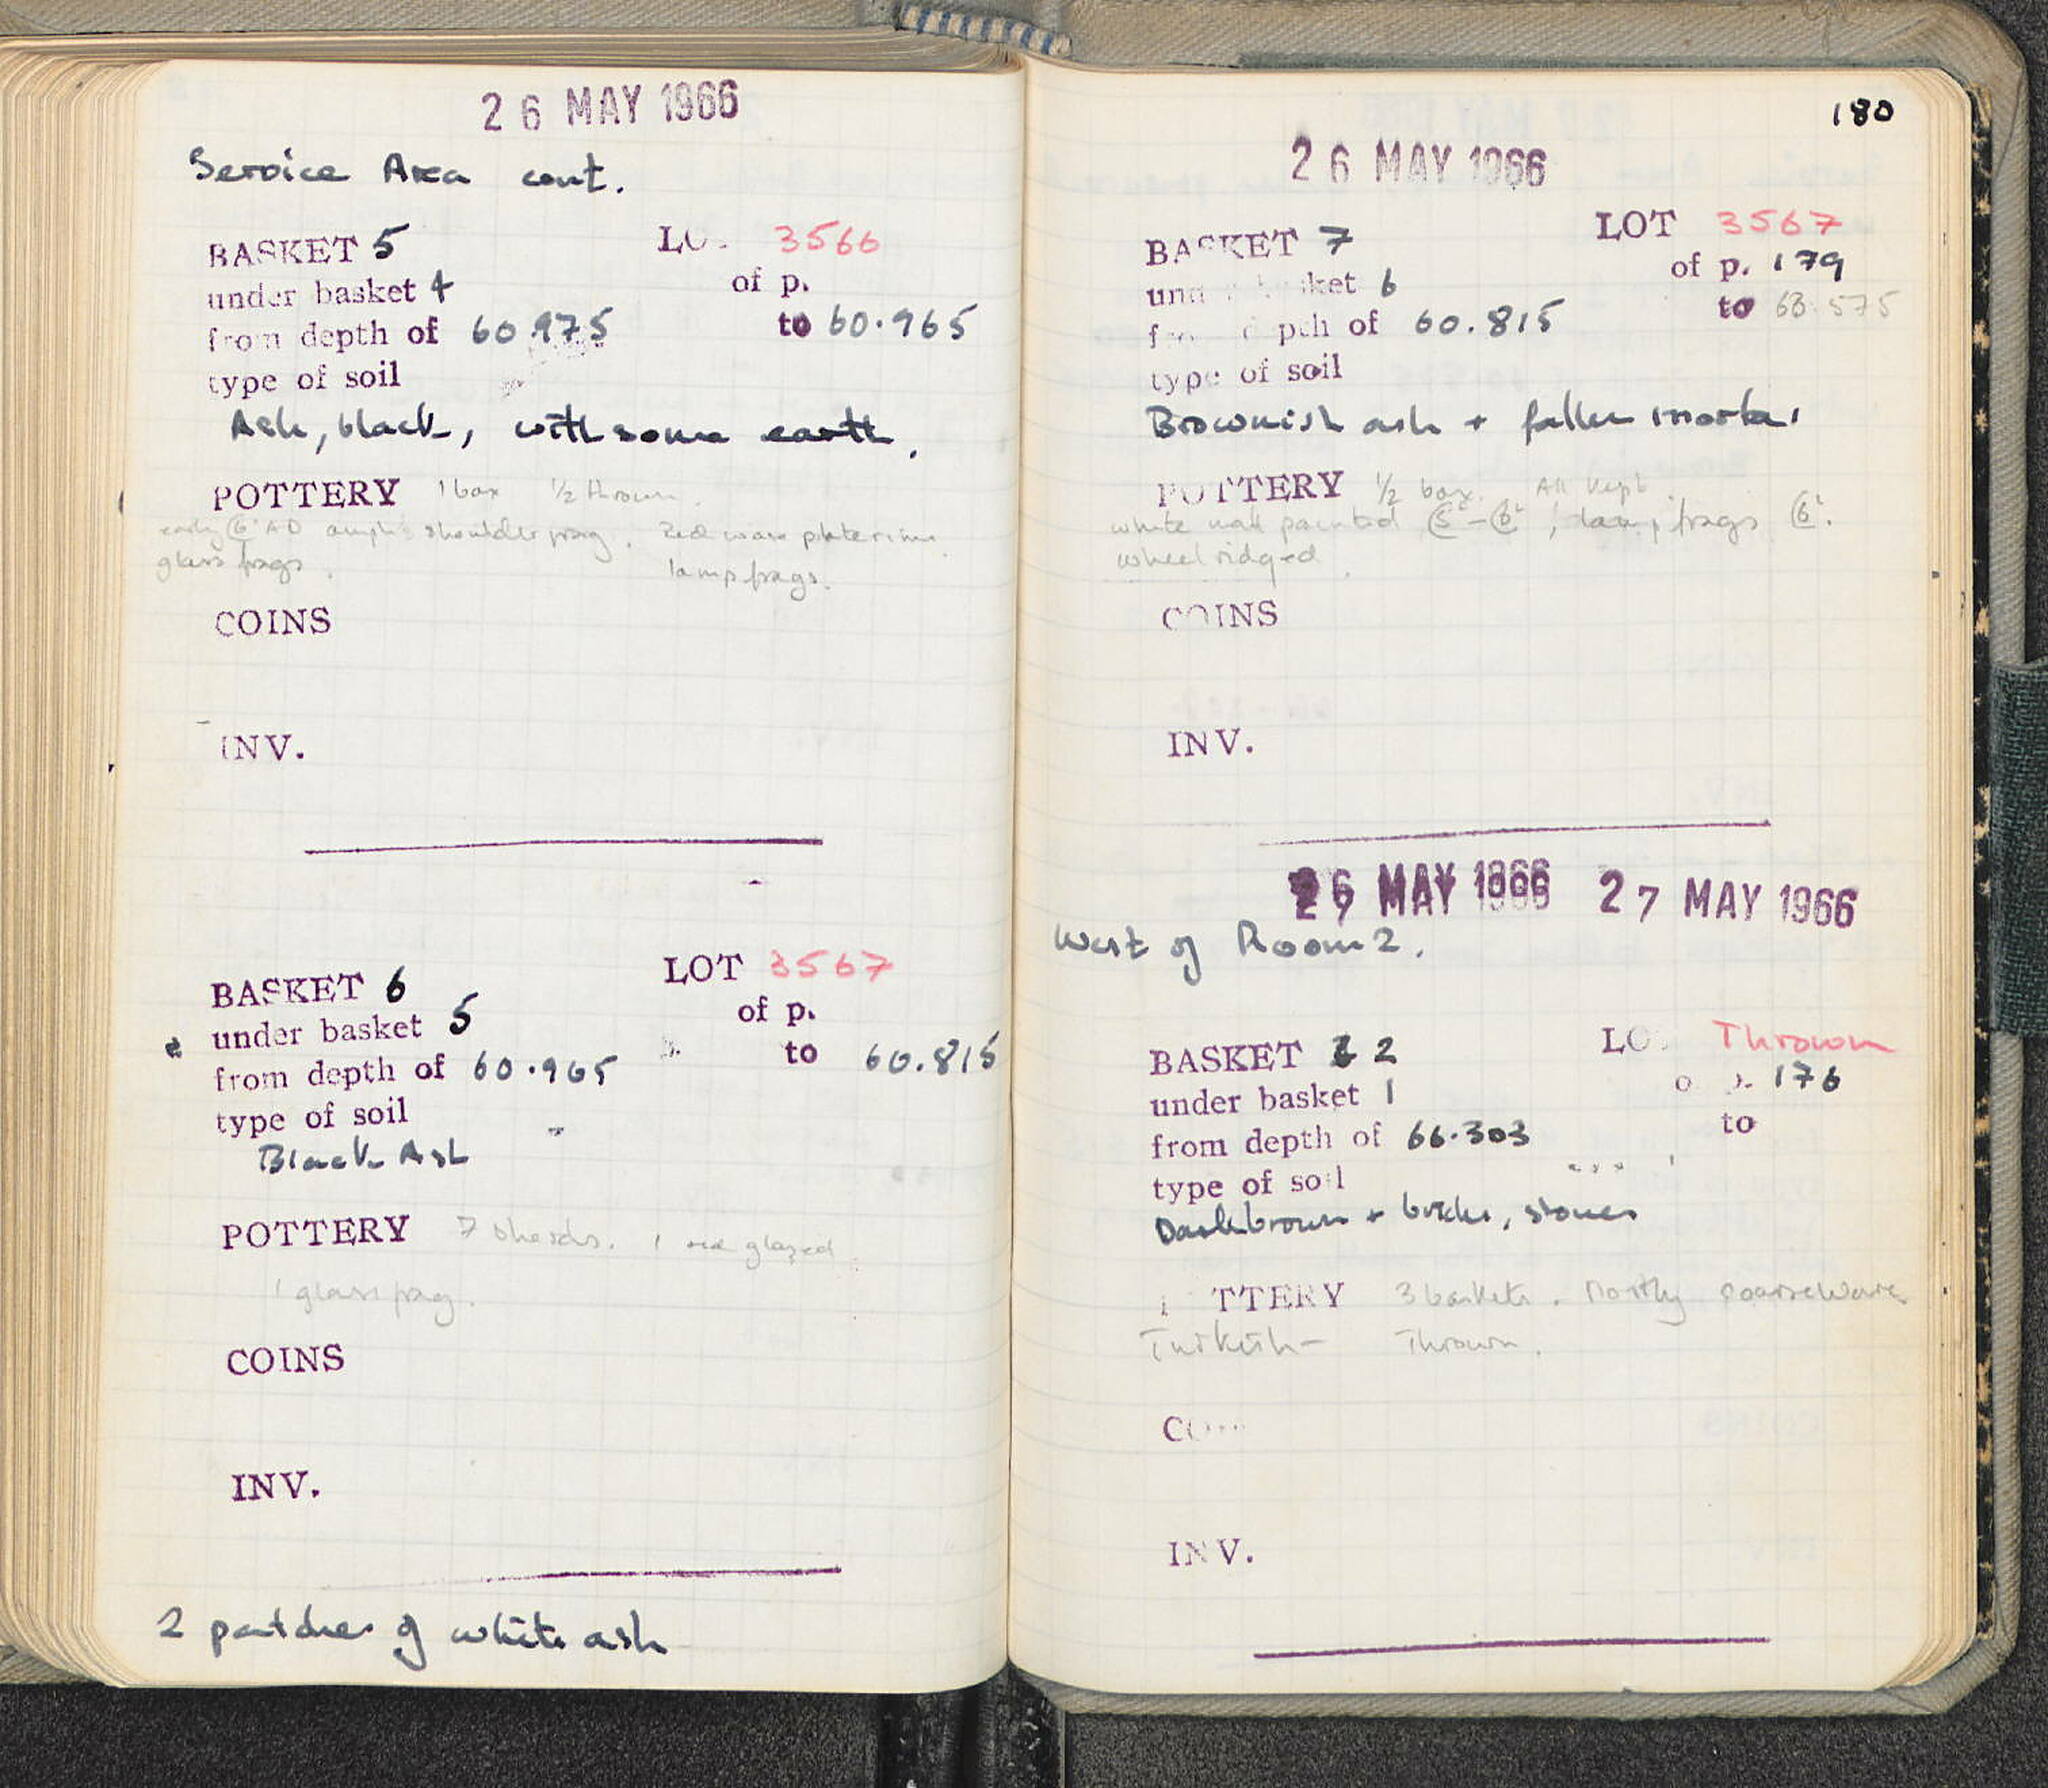 26 MAY 1966
Service Area cont.
BASKET 5 LO. 3566
under basket 4 of p.
from depth of 60.975 to 60.965
type of soil
Ash, black, with some earth.
POTTERY 1 box ½ thrown.
early C6 AD amph. shoulder frag. Red ware plate rim.
glass frags. lamp frags.
COINS
INV.
BASKET 6 LOT 3567
under basket 5 of p.
from depth of 60.965 to 60.815
type of soil
Black Ash
POTTERY 7 sherds. 1 red glazed.
1 glass frag.
COINS
INV.
2 patches of white ash
180
26 MAY 1966
BASKET 7 LOT 3567
under basket 6 of p. 179
from depth of 60.815 to 60.575
type of soil
Brownish ash + fallen mortar
POTTERY ½ box. All kept.
white painted C5 - C6; lamp frags C6.
wheel ridged.
COINS
INV.
26 MAY 1966 27 MAY 1966
West of Room 2.
BASKET 2 LO. Thrown
under basket 1 p. 176
from depth of 66.303 to
type of soil
Dark brown + bricks, stones
POTTERY 3 baskets. Mostly coarse wares
Turkish - Thrown.
CO
INV.